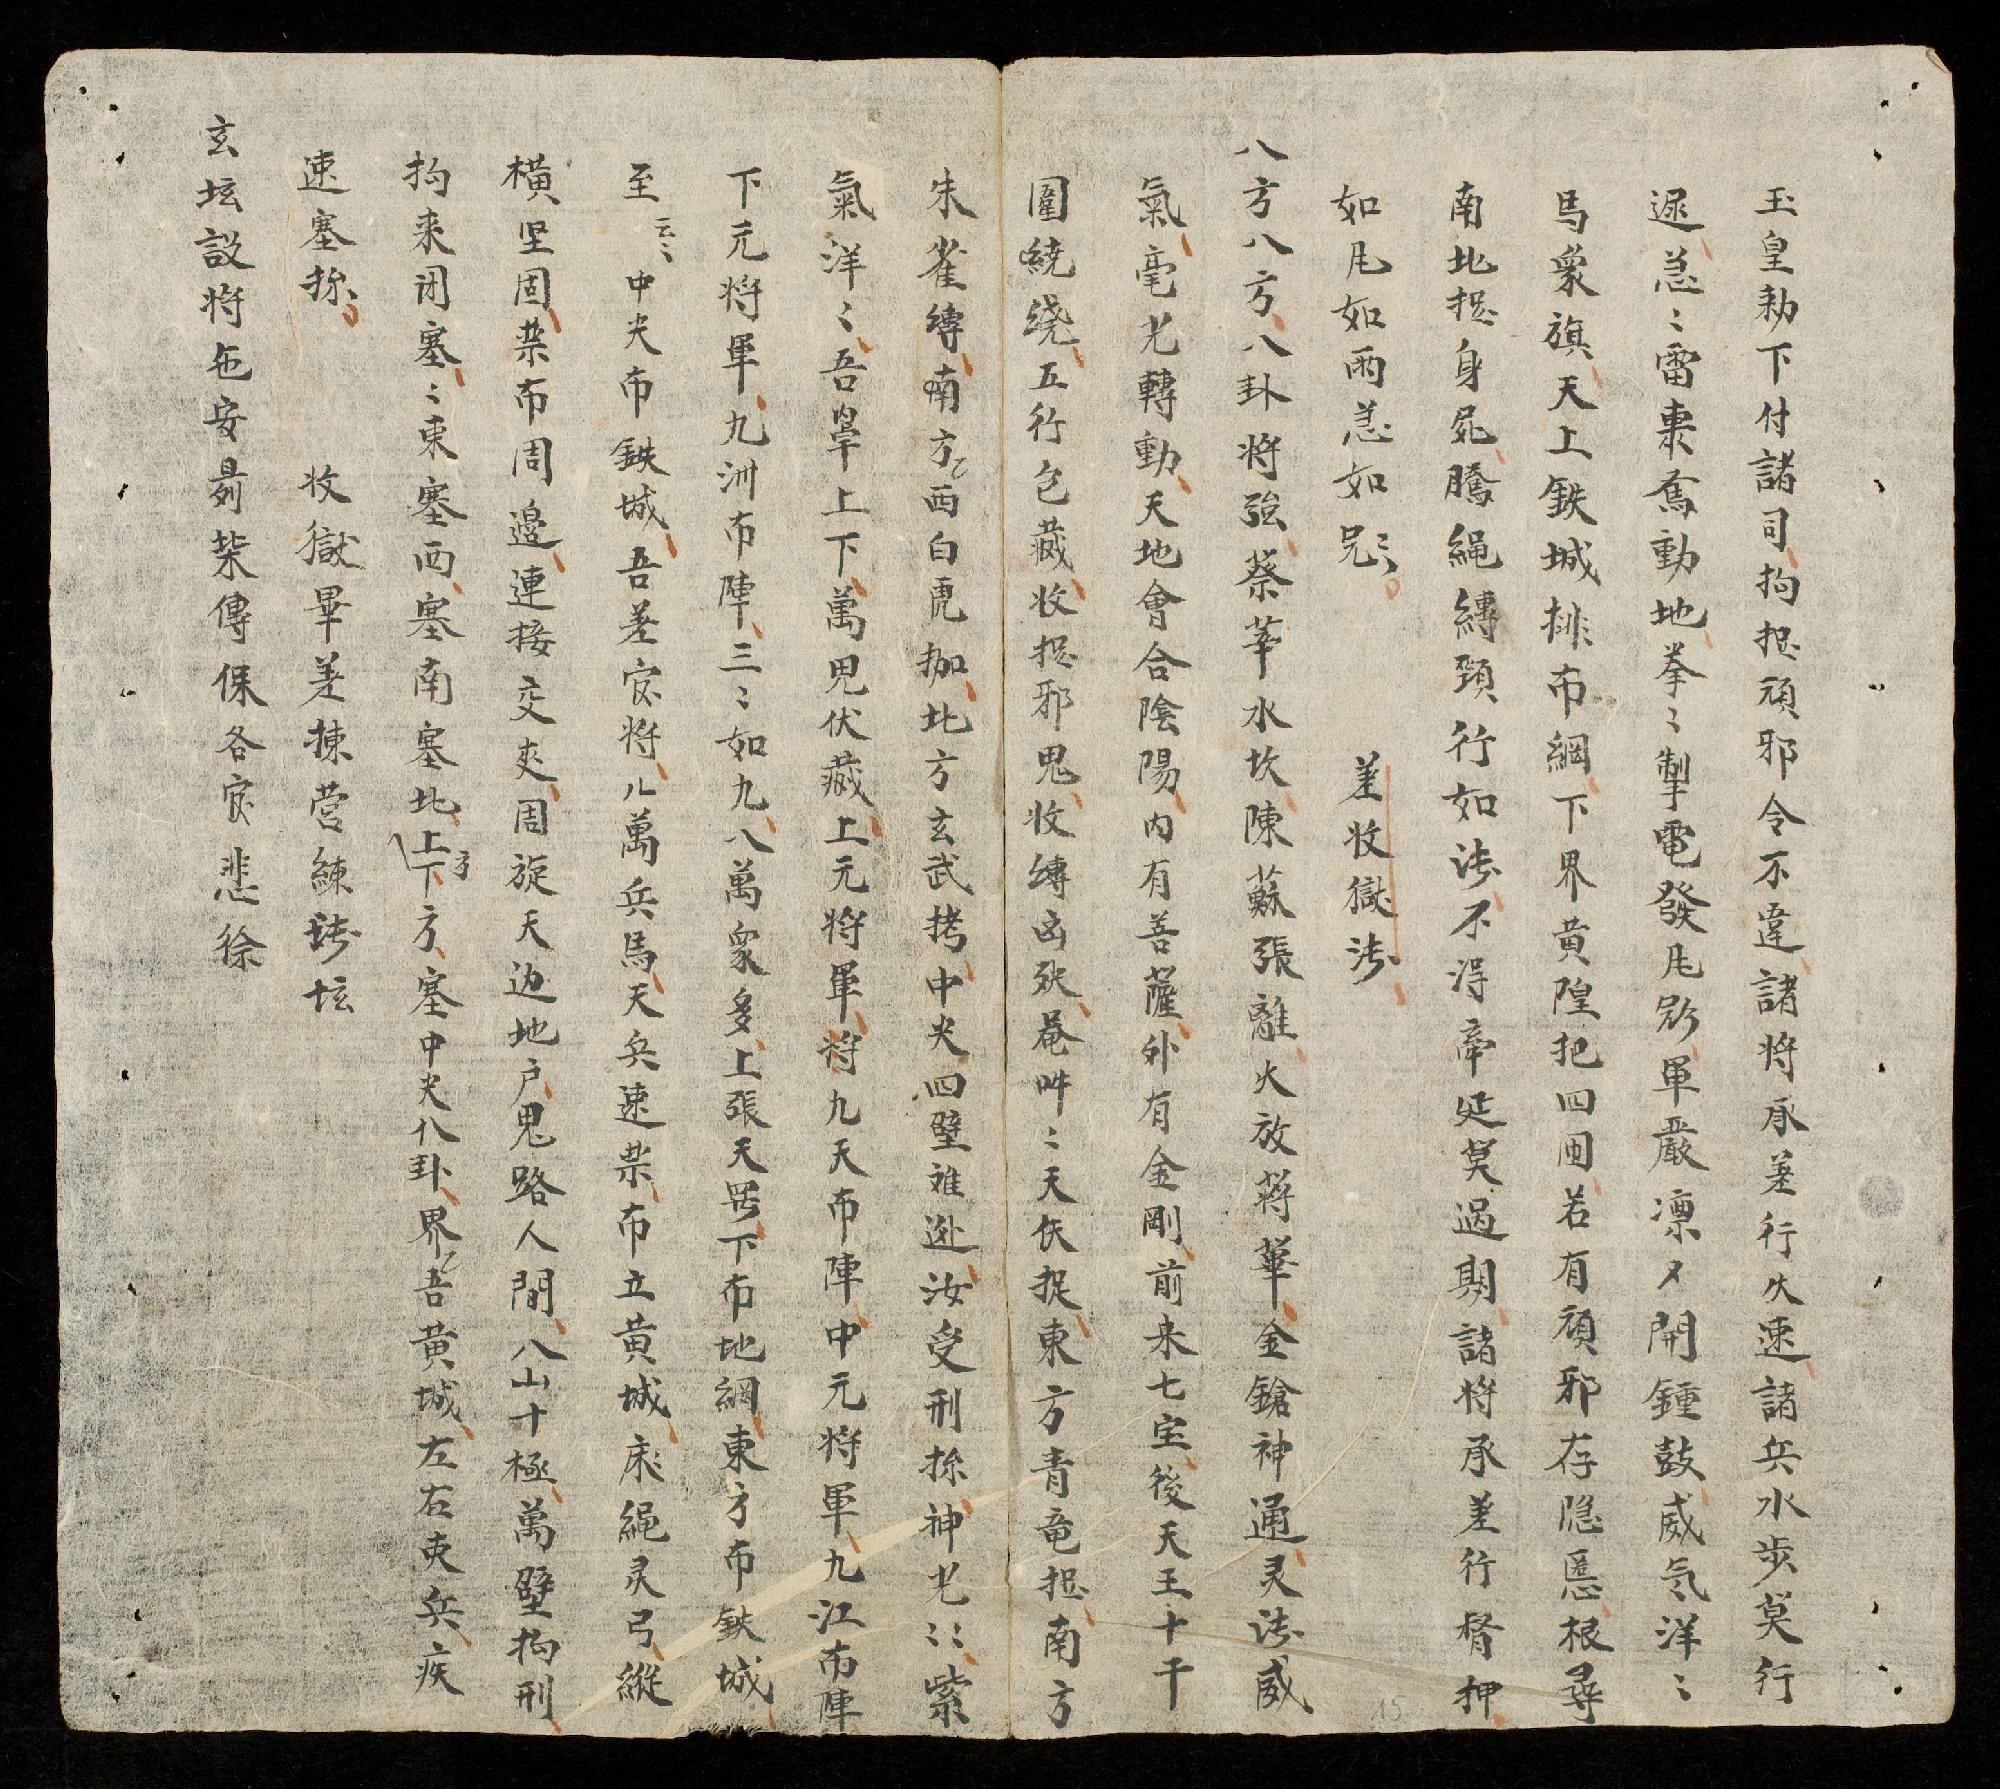 玉皇勅下付諸司拘捉頑邪令不違諸将承差行火速諸兵水步莫行
遲急〻雷隶奮動地拳〻掣電發凬𩲃軍嚴凛〻開鍾鼓威気洋〻
馬衆旗天上鉄城排布綱下界黄隍把四囬若有頑邪存隐慝根尋
南北捉身屍騰繩縛頸行如法不淂牵延莫過期諸将承差行督押
如凬如雨急如咒〻 差收獄法
八方八方八卦将強蔡莘水坎陳蘇張離火放蒋華金鎗神通灵法威
氣毫光轉動天地會合陰陽内有菩薩外有金剛前来七宝後天王十干
圍繞繞五行包藏收捉邪鬼收縛凶殃菴吽〻天灰捉東方青竜捉南方
朱雀縛喃方西白虎枷北方玄武拷中央四壁难逊汝受刑捺神光〻紫
氣洋〻吾掌上下萬鬼伏藏上元将軍将九天布陣中元将軍九江布陣
下元将軍九洲布陣三〻如九八萬衆多上張天罗下布地綱東方布鉄城
至云〻中央布鉄城吾差官将八萬兵馬天兵速禁布立黄城床繩灵弓縱
横坚固禁布周邉連接交夾周旋天边地户鬼路人間八山十極萬壁拘刑
拘来闭塞〻東塞西塞南塞北上方下方塞中央八卦界吾黄城左右吏兵疾
速塞捺〻 收獄畢差揀营練𨋢坛
玄坛設将兵安㔹柴傳保各官悲徐